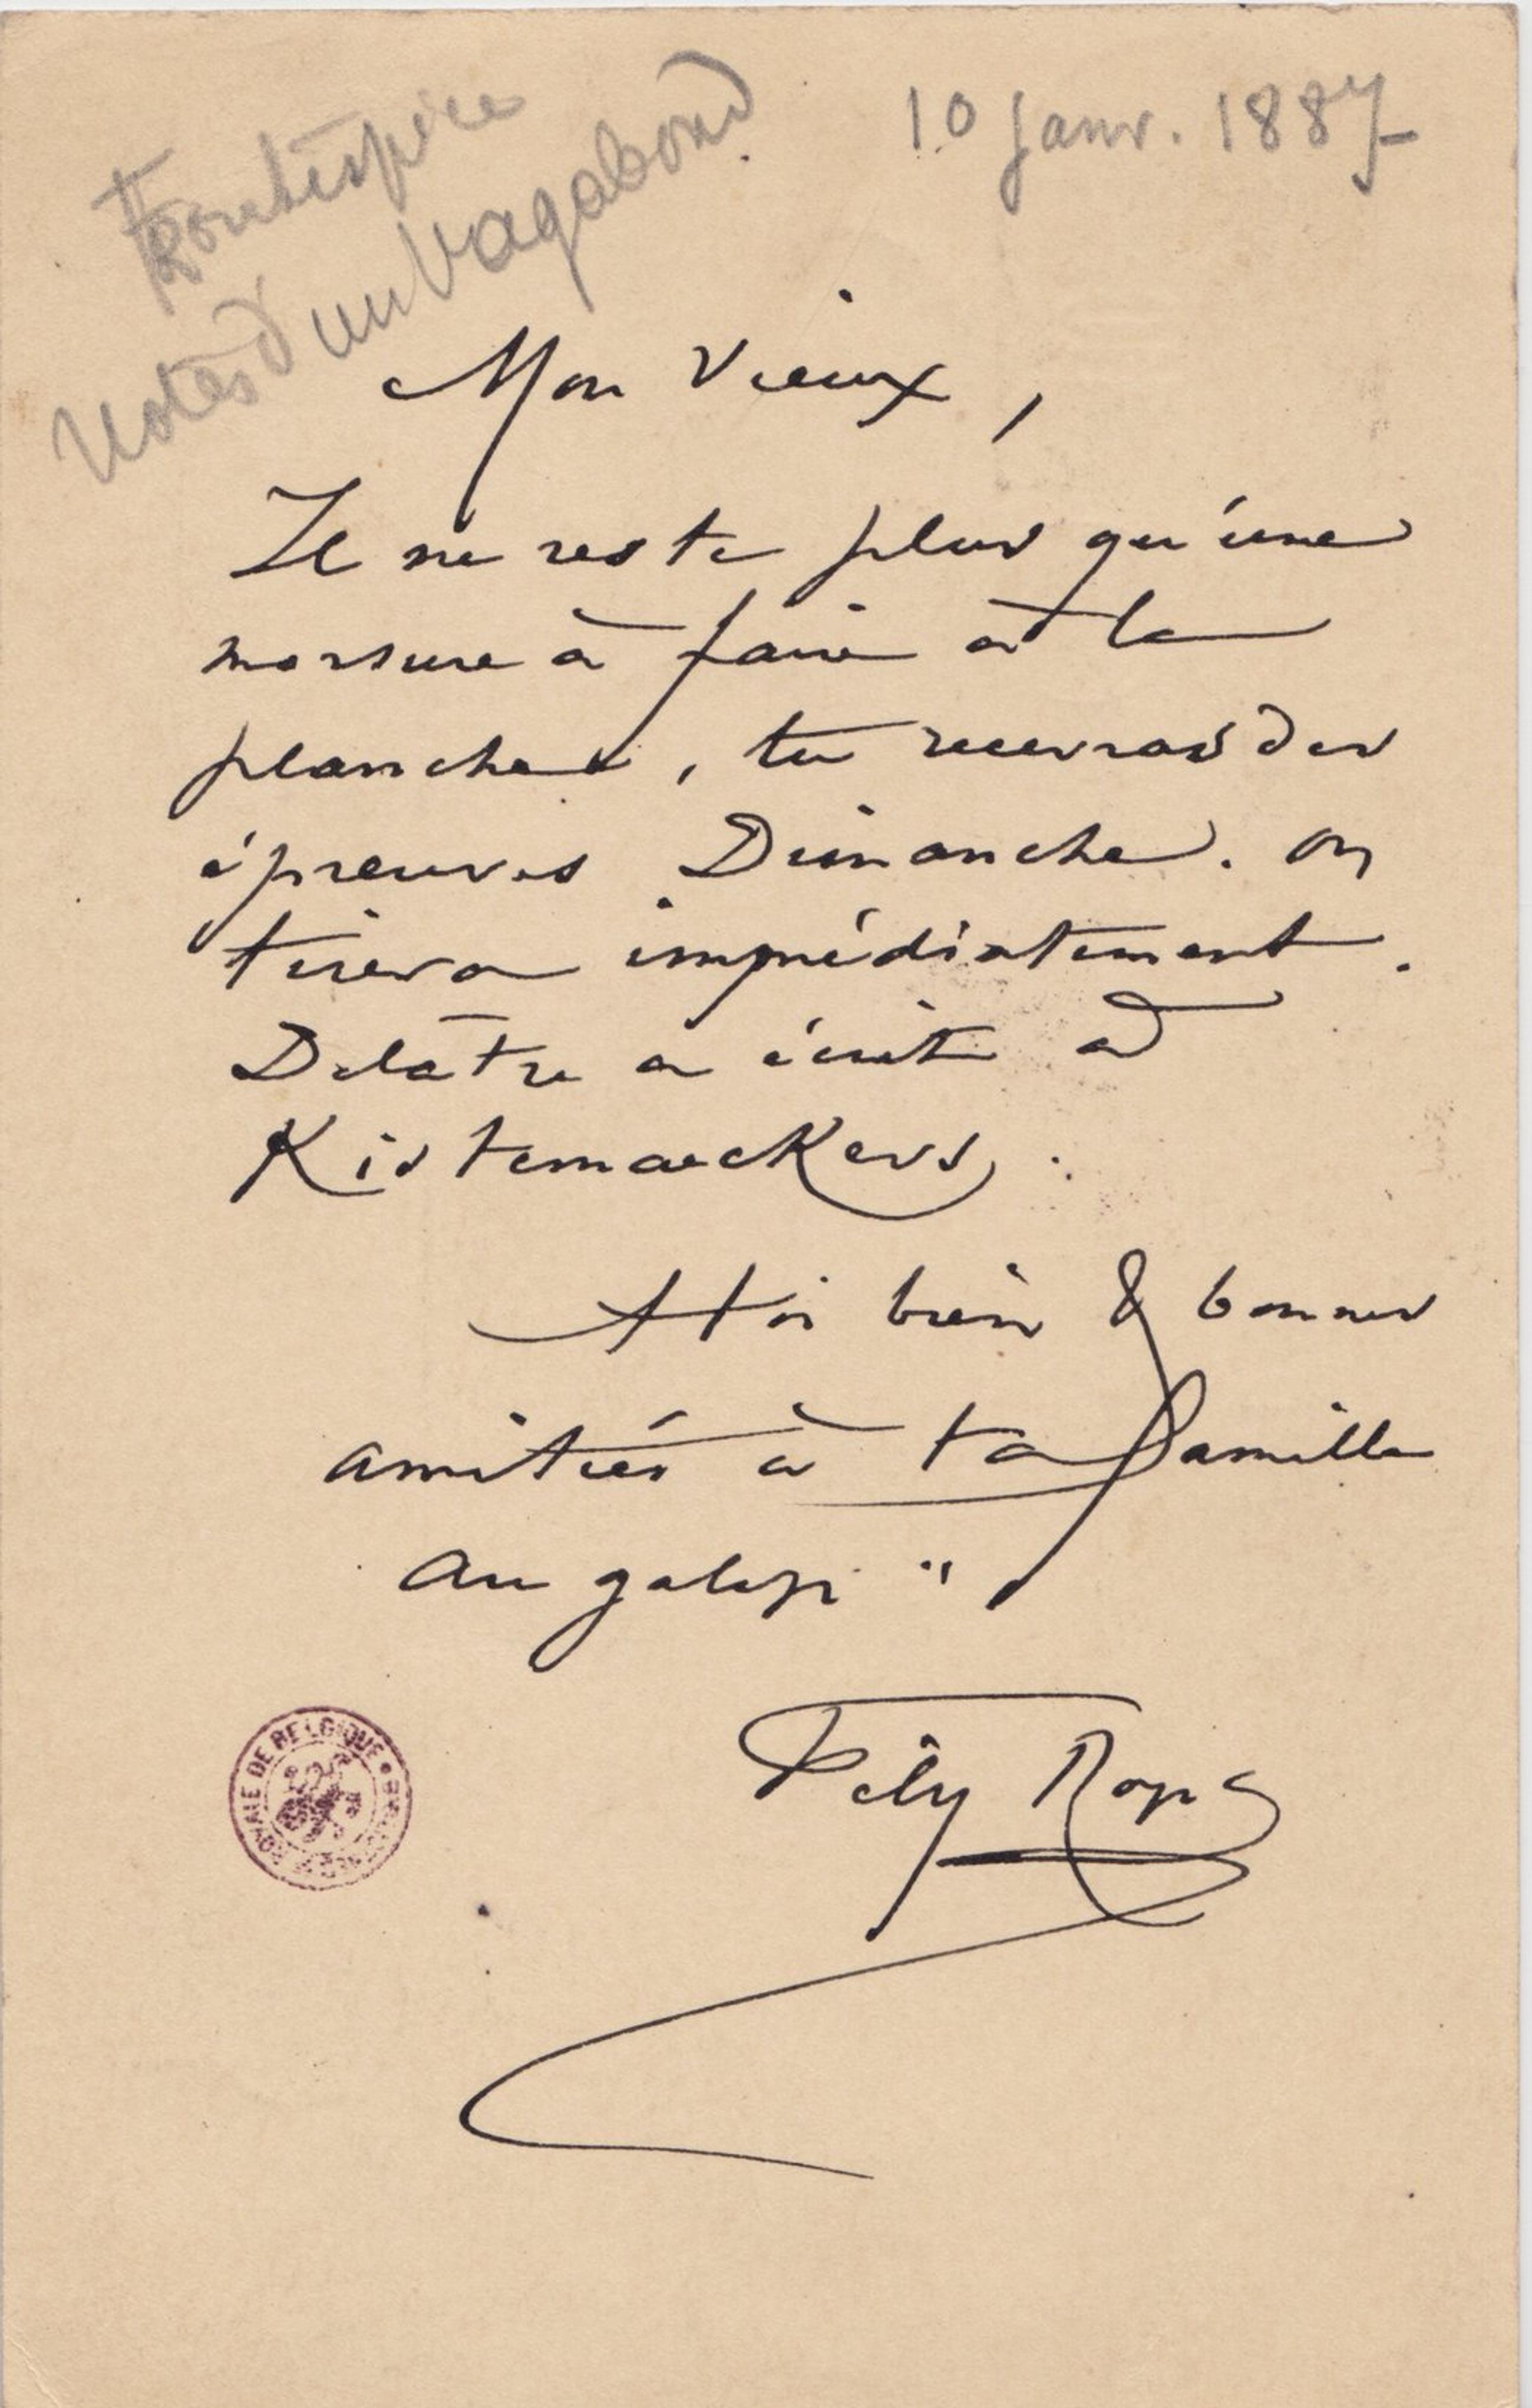 Frontispice
Notes d'un Vagabond
10 Janv. 1887
Mon Vieux,
Il ne reste plus qu'une
morsure à faire à la
planche, tu recevras des
épreuves Dimanche. On
tirera immédiatement.
Delâtre a écrit à
Kistemaeckers.
A toi bien & bonnes
amitiés à ta famille
au galop "
Fély Rops
ROYALE DE BELGIQUE